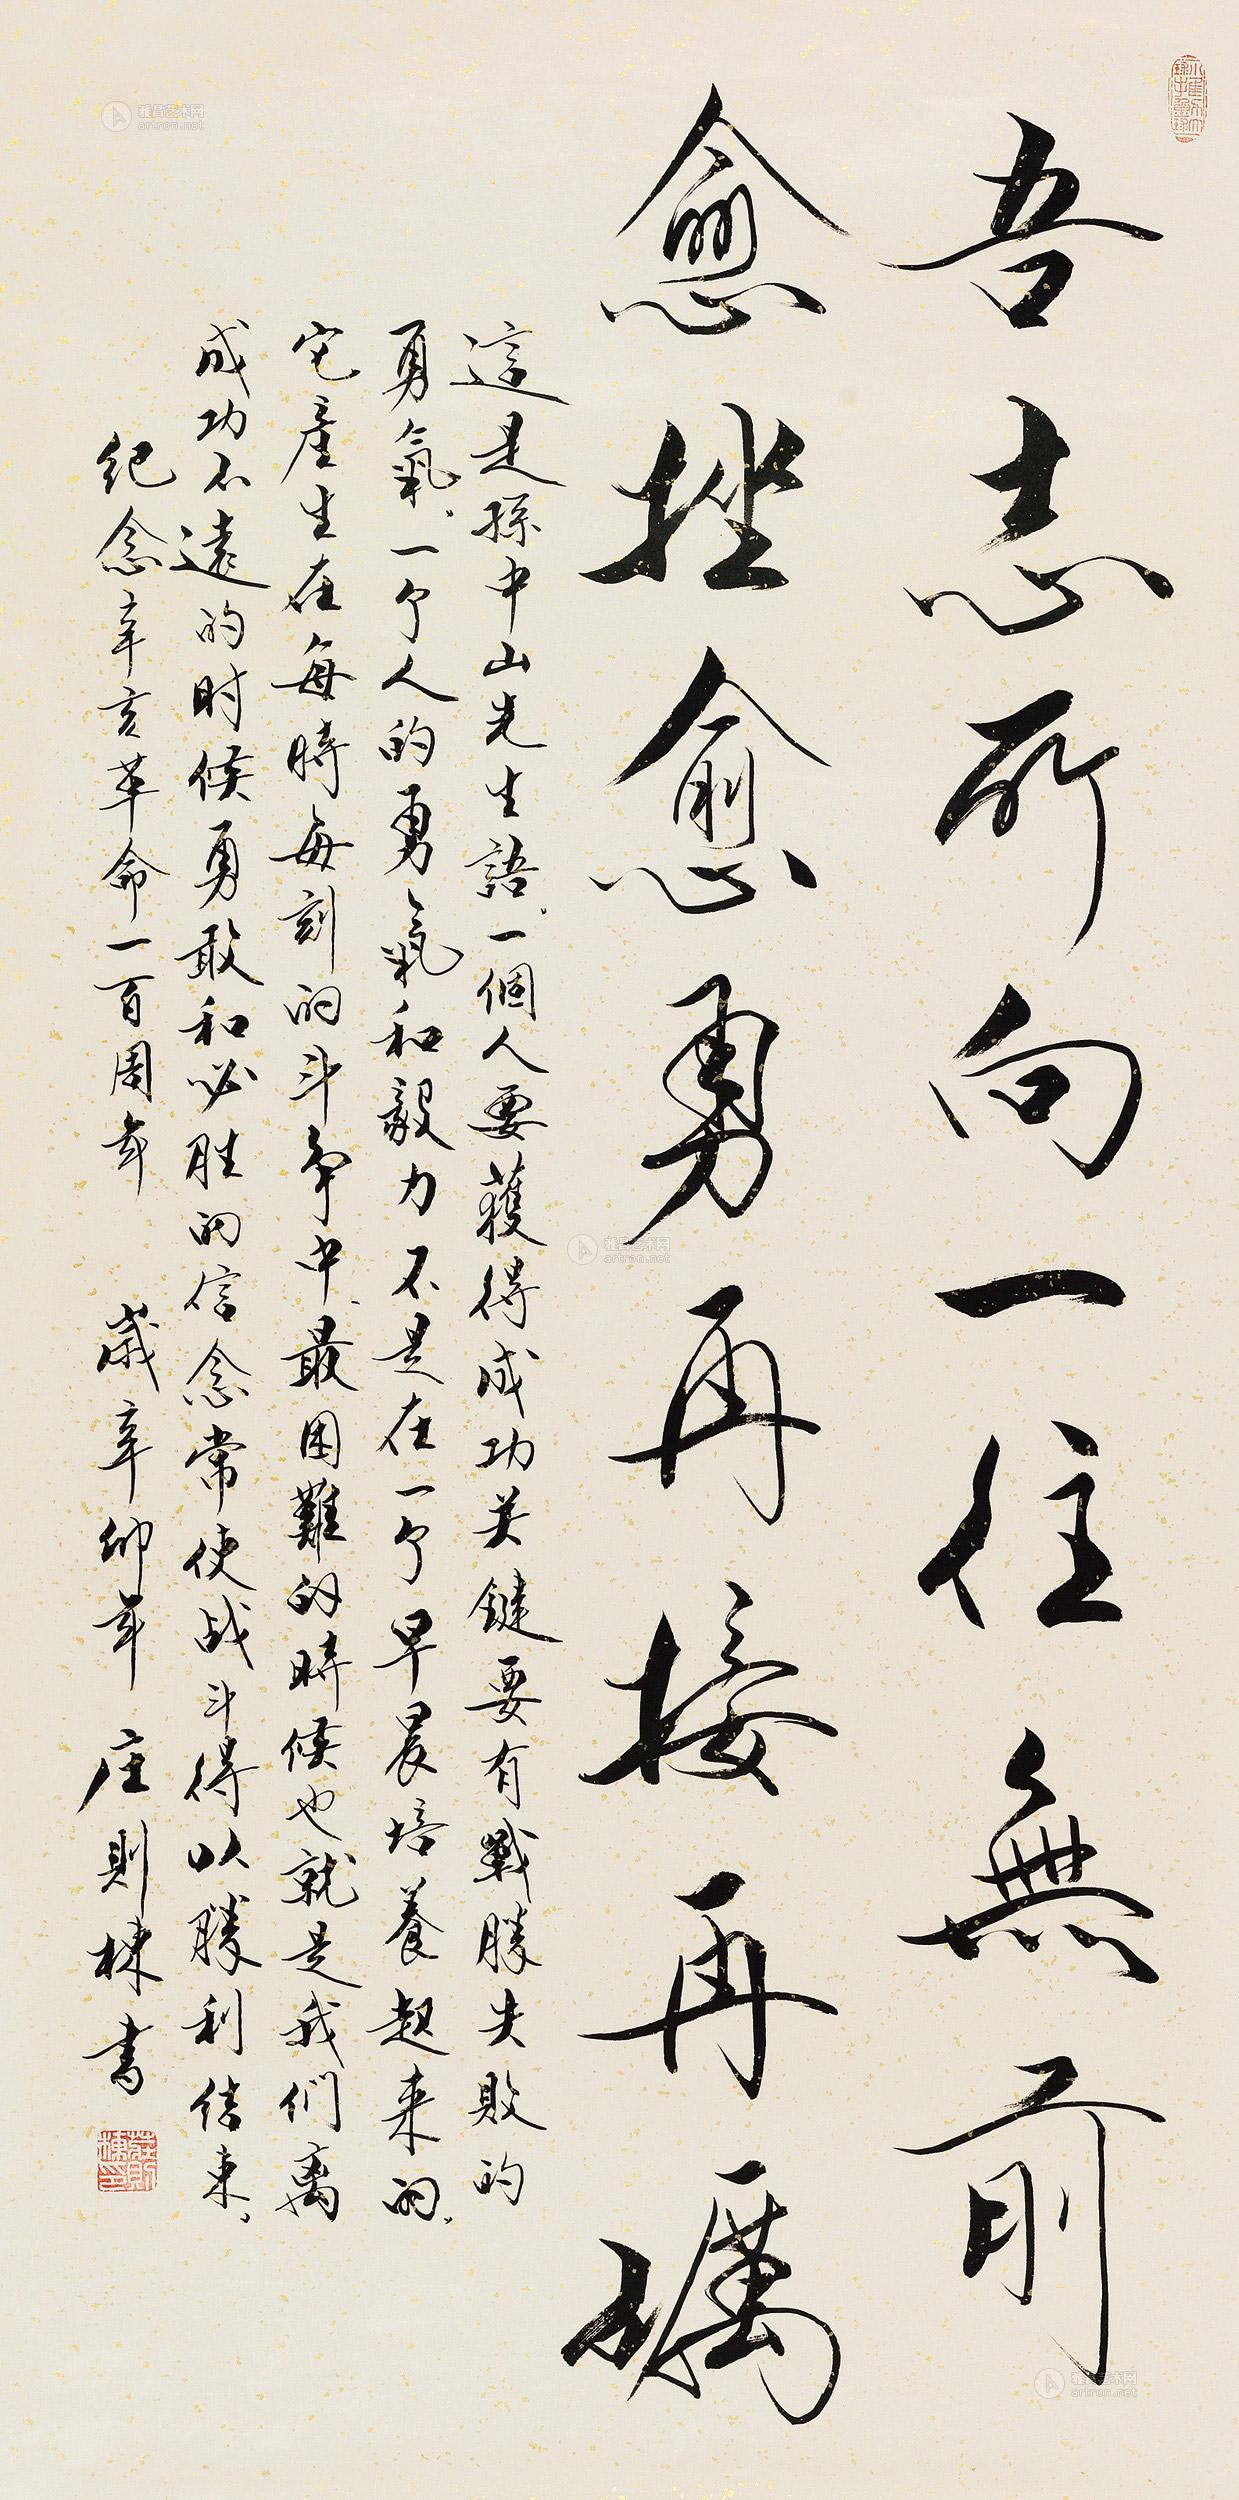 吾志所向一往無前
愈挫愈勇再接再礪
這是孫中山先生語，一個人要獲得成功关鍵要有戰勝失敗的
勇氣，一个人的勇氣和毅力不是在一个早晨培養起来的，
它產生在每時每刻的斗争中、最困難的時候也就是我們离
成功不遠的时候勇敢和必胜的信念常使战斗得以勝利结束，
纪念辛亥革命一百周年 歲辛卯年 庄則棟書
莊則棟印
雅昌艺术网
artron.net
雅昌艺术网
artron.net
雅昌艺术网
artron.net